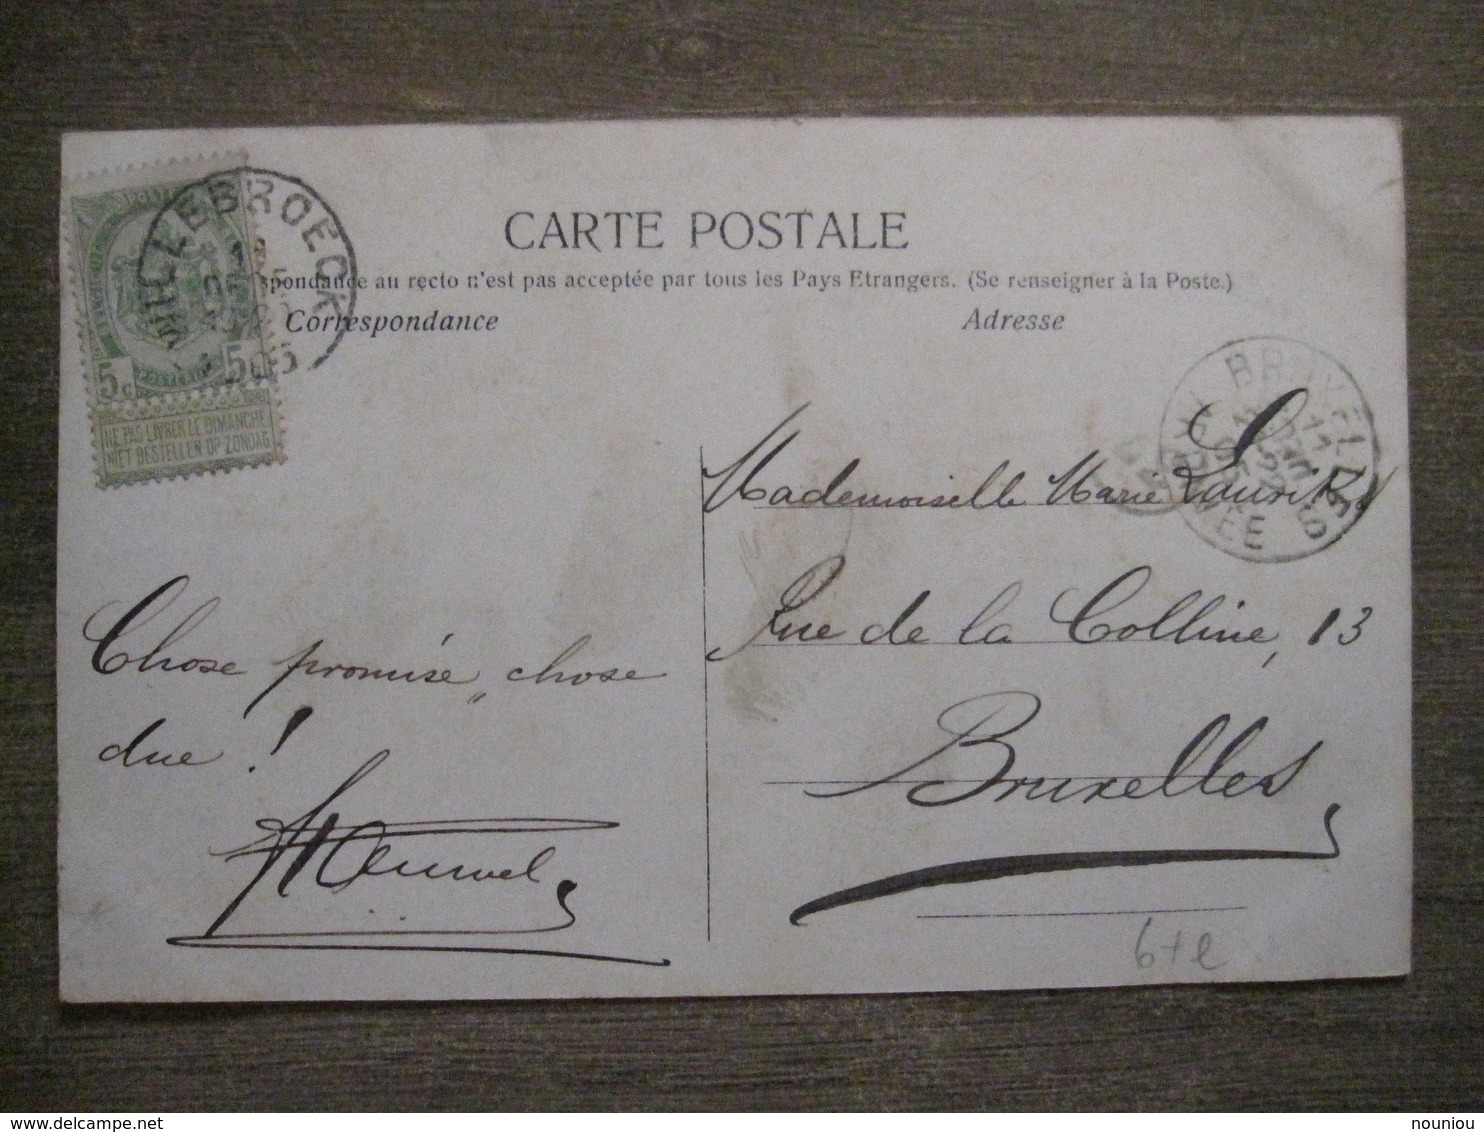 WILLEBROECK
5c 5c
NE PAS LIVRER LE DIMANCHE
NIET BESTELLEN OP ZONDAG
CARTE POSTALE
spondance au recto n'est pas acceptée par tous les Pays Etrangers. (Se renseigner à la Poste.)
Correspondance
Adresse
BRUXELLES 5
ARRIVÉE
Mademoiselle Marie
Rue de la Colline, 13
Bruxelles
Chose promise, chose
due !
6+e
nouniou